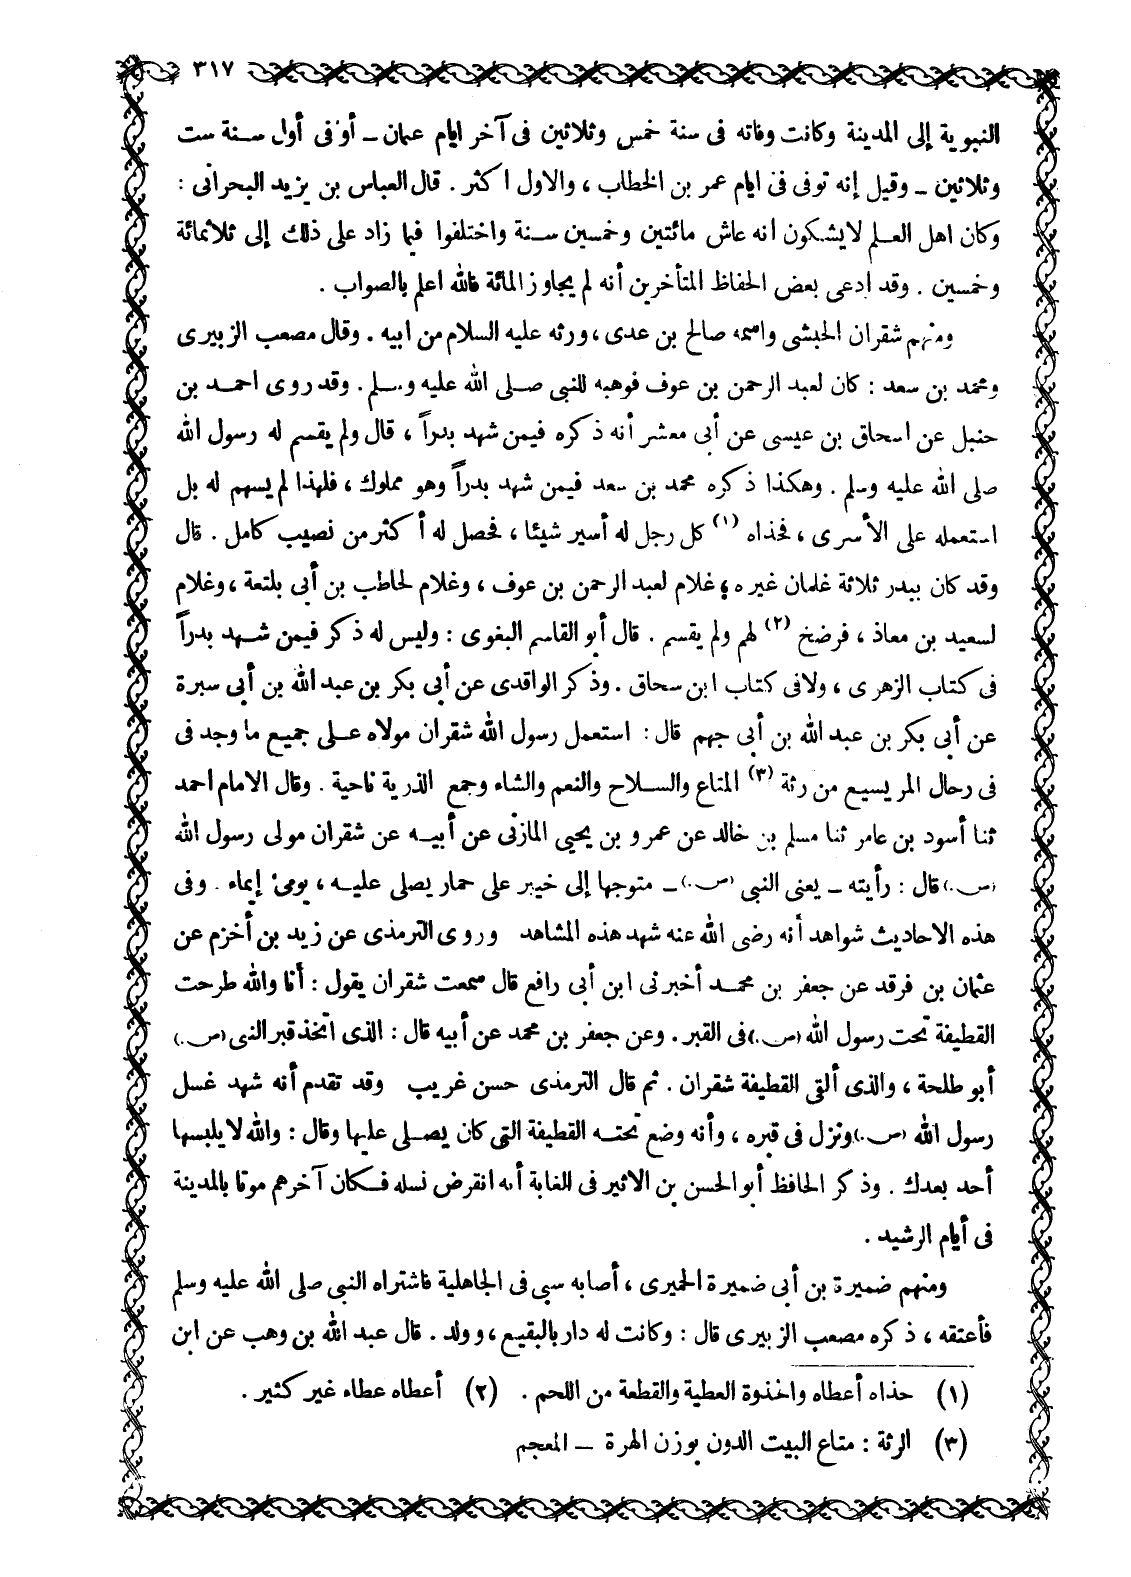 ٣١٧
النبوية إلى المدينة وكانت وفاته فى سنة خمس وثلاثين فى آخر ايام عثمان ـ أو فى أول سنة ست
وثلاثين ـ وقيل إنه توفى فى ايام عمر بن الخطاب ، والاول اكثر . قال العباس بن يزيد البحرانى :
وكان اهل العلم لايشكون انه عاش مائتين وخمسين سنة واختلفوا فيما زاد على ذلك إلى ثلاثمائة
وخمسين . وقد ادعى بعض الحفاظ المتأخرين أنه لم يجاوز المائة فالله اعلم بالصواب .
ومنهم شقران الحبشى واسمه صالح بن عدى ، ورثه عليه السلام من ابيه . وقال مصعب الزبيرى
ومحمد بن سعد : كان لعبد الرحمن بن عوف فوهبه للنبى صلى الله عليه وسلم . وقد روى احمد بن
حنبل عن اسحاق بن عيسى عن أبى معشر أنه ذكره فيمن شهد بدراً ، قال ولم يقسم له رسول الله
صلى الله عليه وسلم . وهكذا ذكره محمد بن سعد فيمن شهد بدراً وهو مملوك ، فلهذا لم يسهم له بل
استعمله على الأسرى ، فحذاه (١) كل رجل له أسير شيئا ، فحصل له أكثر من نصيب كامل . قال
وقد كان ببدر ثلاثة غلمان غيره ؛ غلام لعبد الرحمن بن عوف ، وغلام لحاطب بن أبى بلتعة ، وغلام
لسعيد بن معاذ ، فرضخ (٢) لهم ولم يقسم . قال أبو القاسم البغوى : وليس له ذكر فيمن شهد بدراً
فى كتاب الزهرى ، ولا فى كتاب ابن سحاق . وذكر الواقدى عن أبى بكر بن عبد الله بن أبى سبرة
عن أبى بكر بن عبد الله بن أبى جهم قال : استعمل رسول الله شقران مولاه على جميع ما وجد فى
فى رحال المريسيع من رثة (٣) المتاع والسلاح والنعم والشاء وجمع الذرية ناحية . وقال الامام احمد
ثنا أسود بن عامر ثنا مسلم بن خالد عن عمرو بن يحيى المازنى عن أبيه عن شقران مولى رسول الله
(ص.) قال : رأيته ـ يعنى النبى (ص.) ـ متوجها إلى خيبر على حمار يصلى عليه ، يومئ إيماء . وفى
هذه الاحاديث شواهد أنه رضى الله عنه شهد هذه المشاهد وروى الترمذى عن زيد بن أخزم عن
عثمان بن فرقد عن جعفر بن محمد أخبرنى ابن أبى رافع قال سمعت شقران يقول : أنا والله طرحت
القطيفة تحت رسول الله (ص.) فى القبر . وعن جعفر بن محمد عن أبيه قال : الذى اتخذ قبر النبى (ص.)
أبو طلحة ، والذى ألقى القطيفة شقران . ثم قال الترمذى حسن غريب وقد تقدم أنه شهد غسل
رسول الله (ص.) ونزل فى قبره ، وأنه وضع تحته القطيفة التى كان يصلى عليها وقال : والله لا يلبسها
أحد بعدك . وذكر الحافظ أبو الحسن بن الاثير فى الغابة أنه انقرض نسله فكان آخرهم موتا بالمدينة
فى أيام الرشيد .
ومنهم ضميرة بن أبى ضميرة الحميرى ، أصابه سبى فى الجاهلية فاشتراه النبى صلى الله عليه وسلم
فأعتقه ، ذكره مصعب الزبيرى قال : وكانت له دار بالبقيع ، وولد . قال عبد الله بن وهب عن ابن
(١) حذاه أعطاه والحذوة العطية والقطعة من اللحم . (٢) أعطاه عطاء غير كثير .
(٣) الرثة : متاع البيت الدون بوزن الهرة ـ المعجم